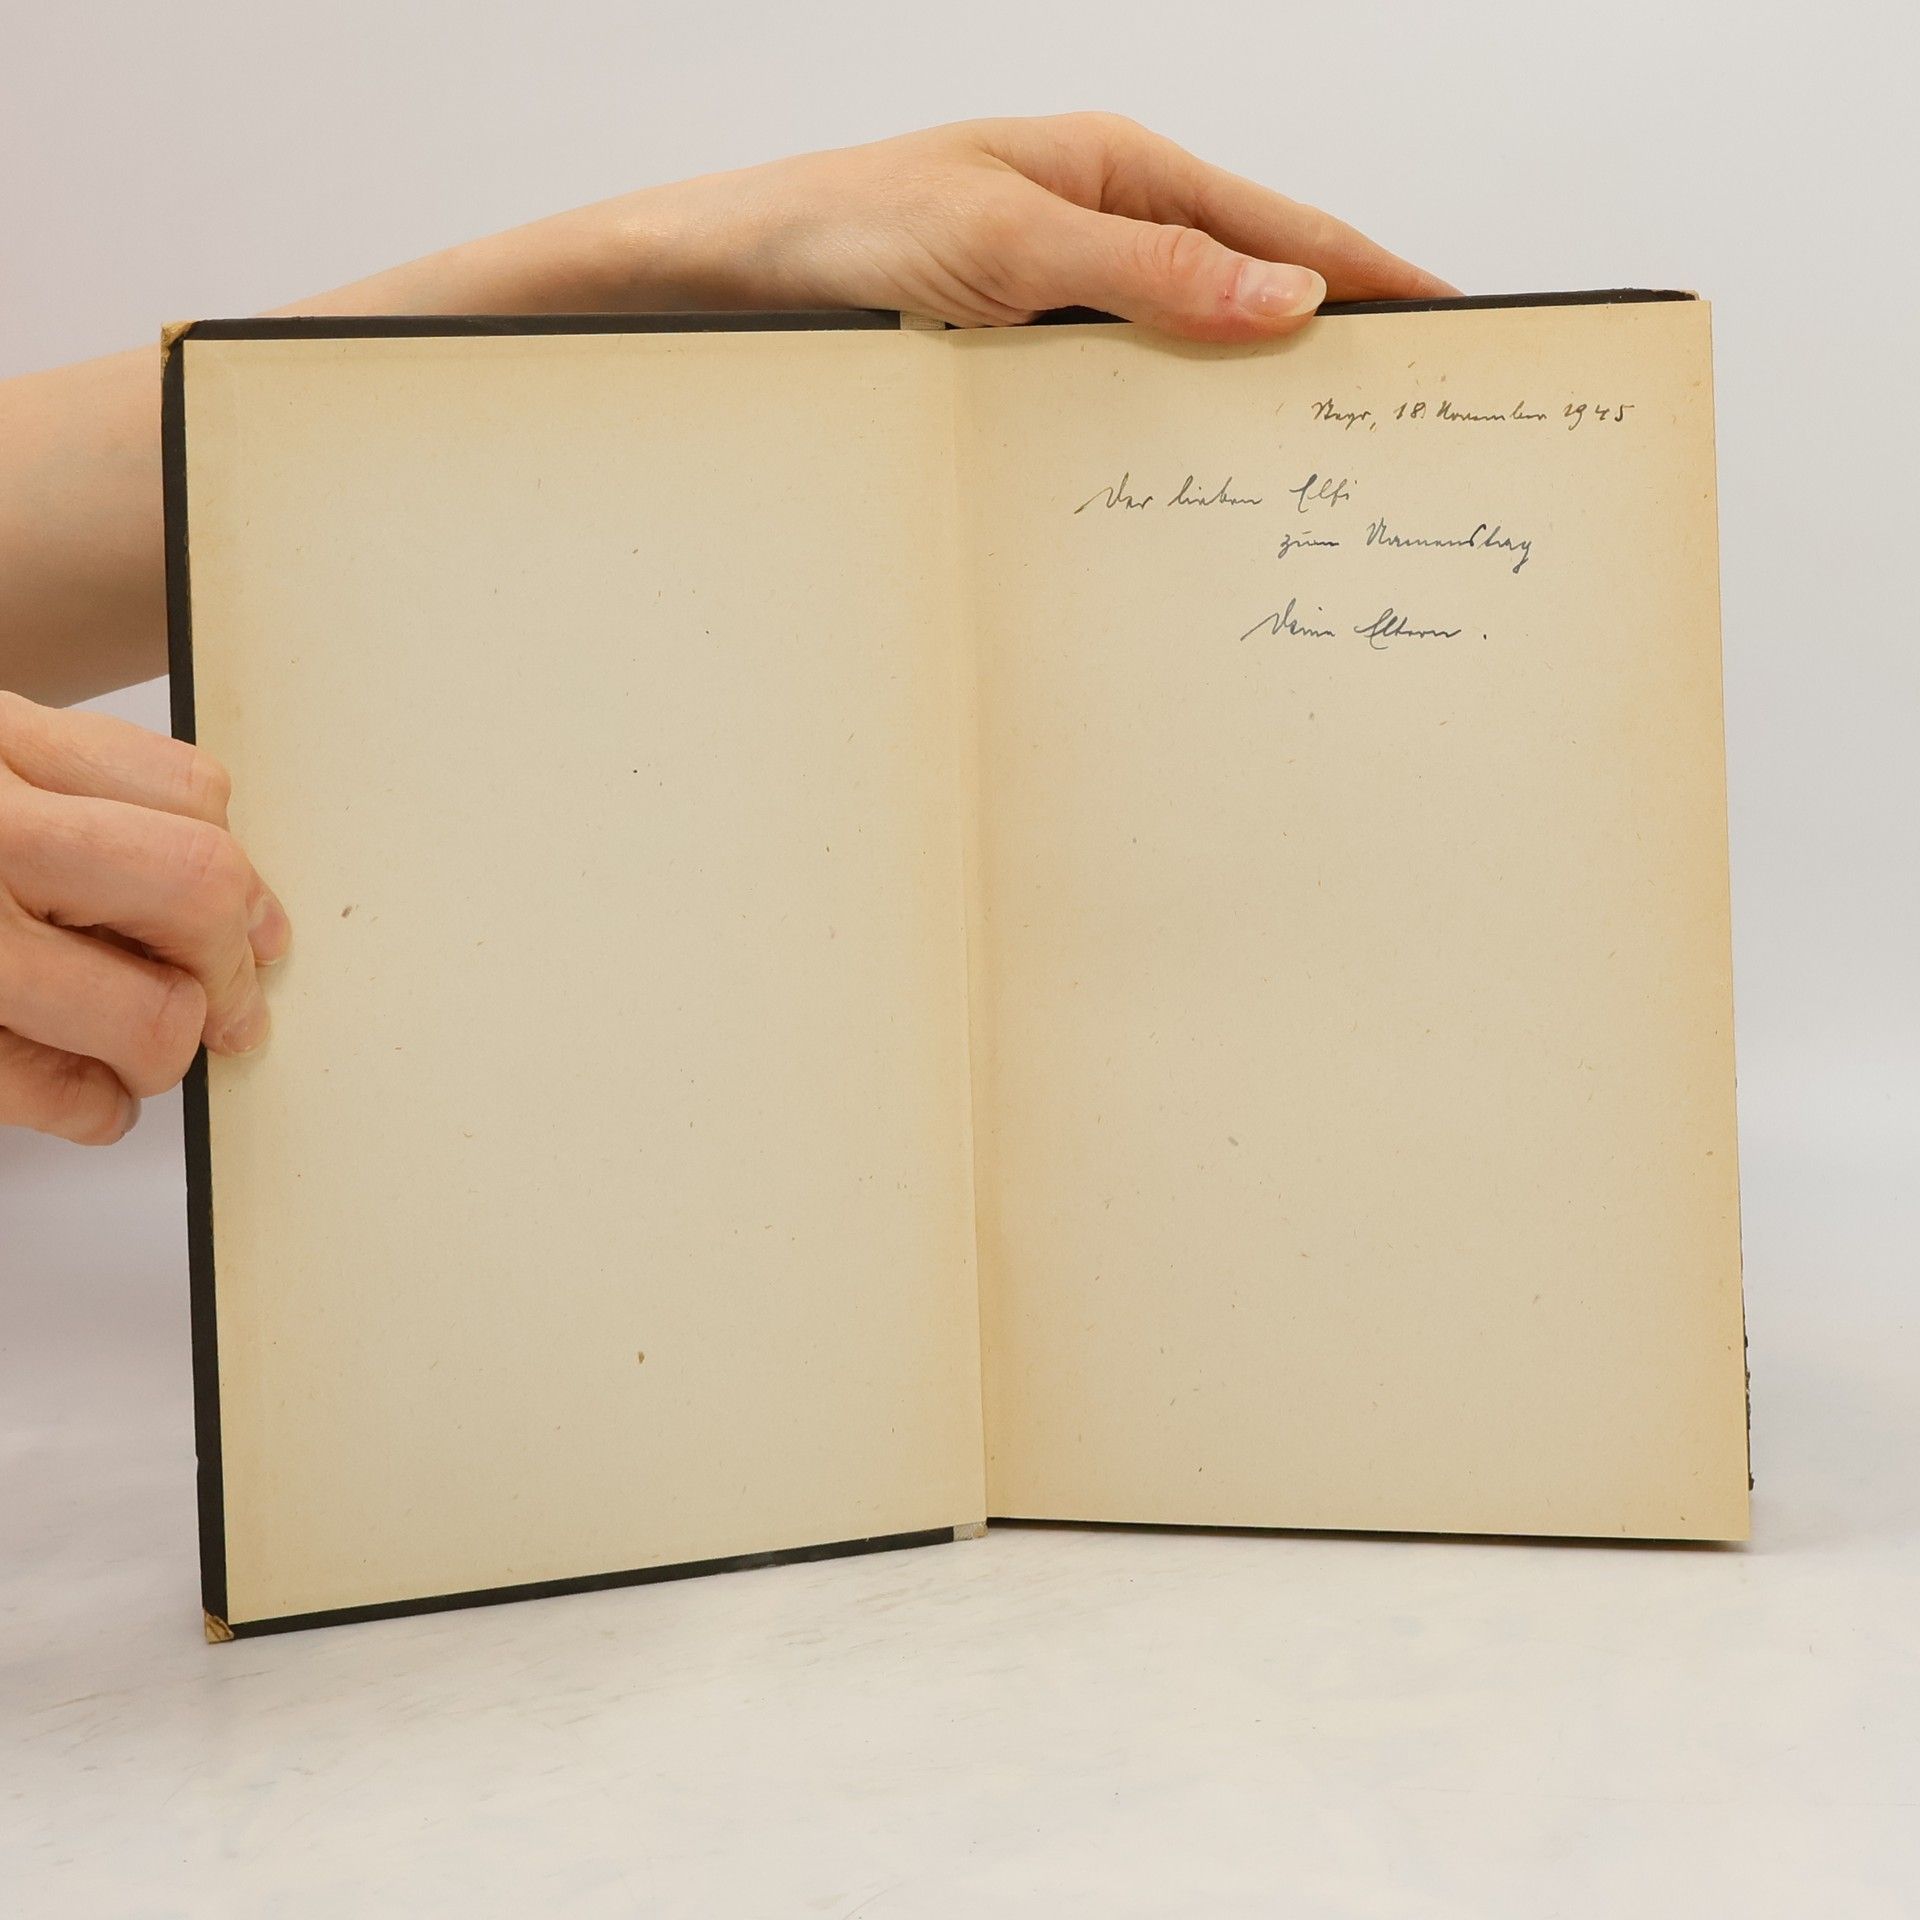 Steyr, 18. November 1945
Der lieben Elfi
zum Namenstag
Deine Eltern.